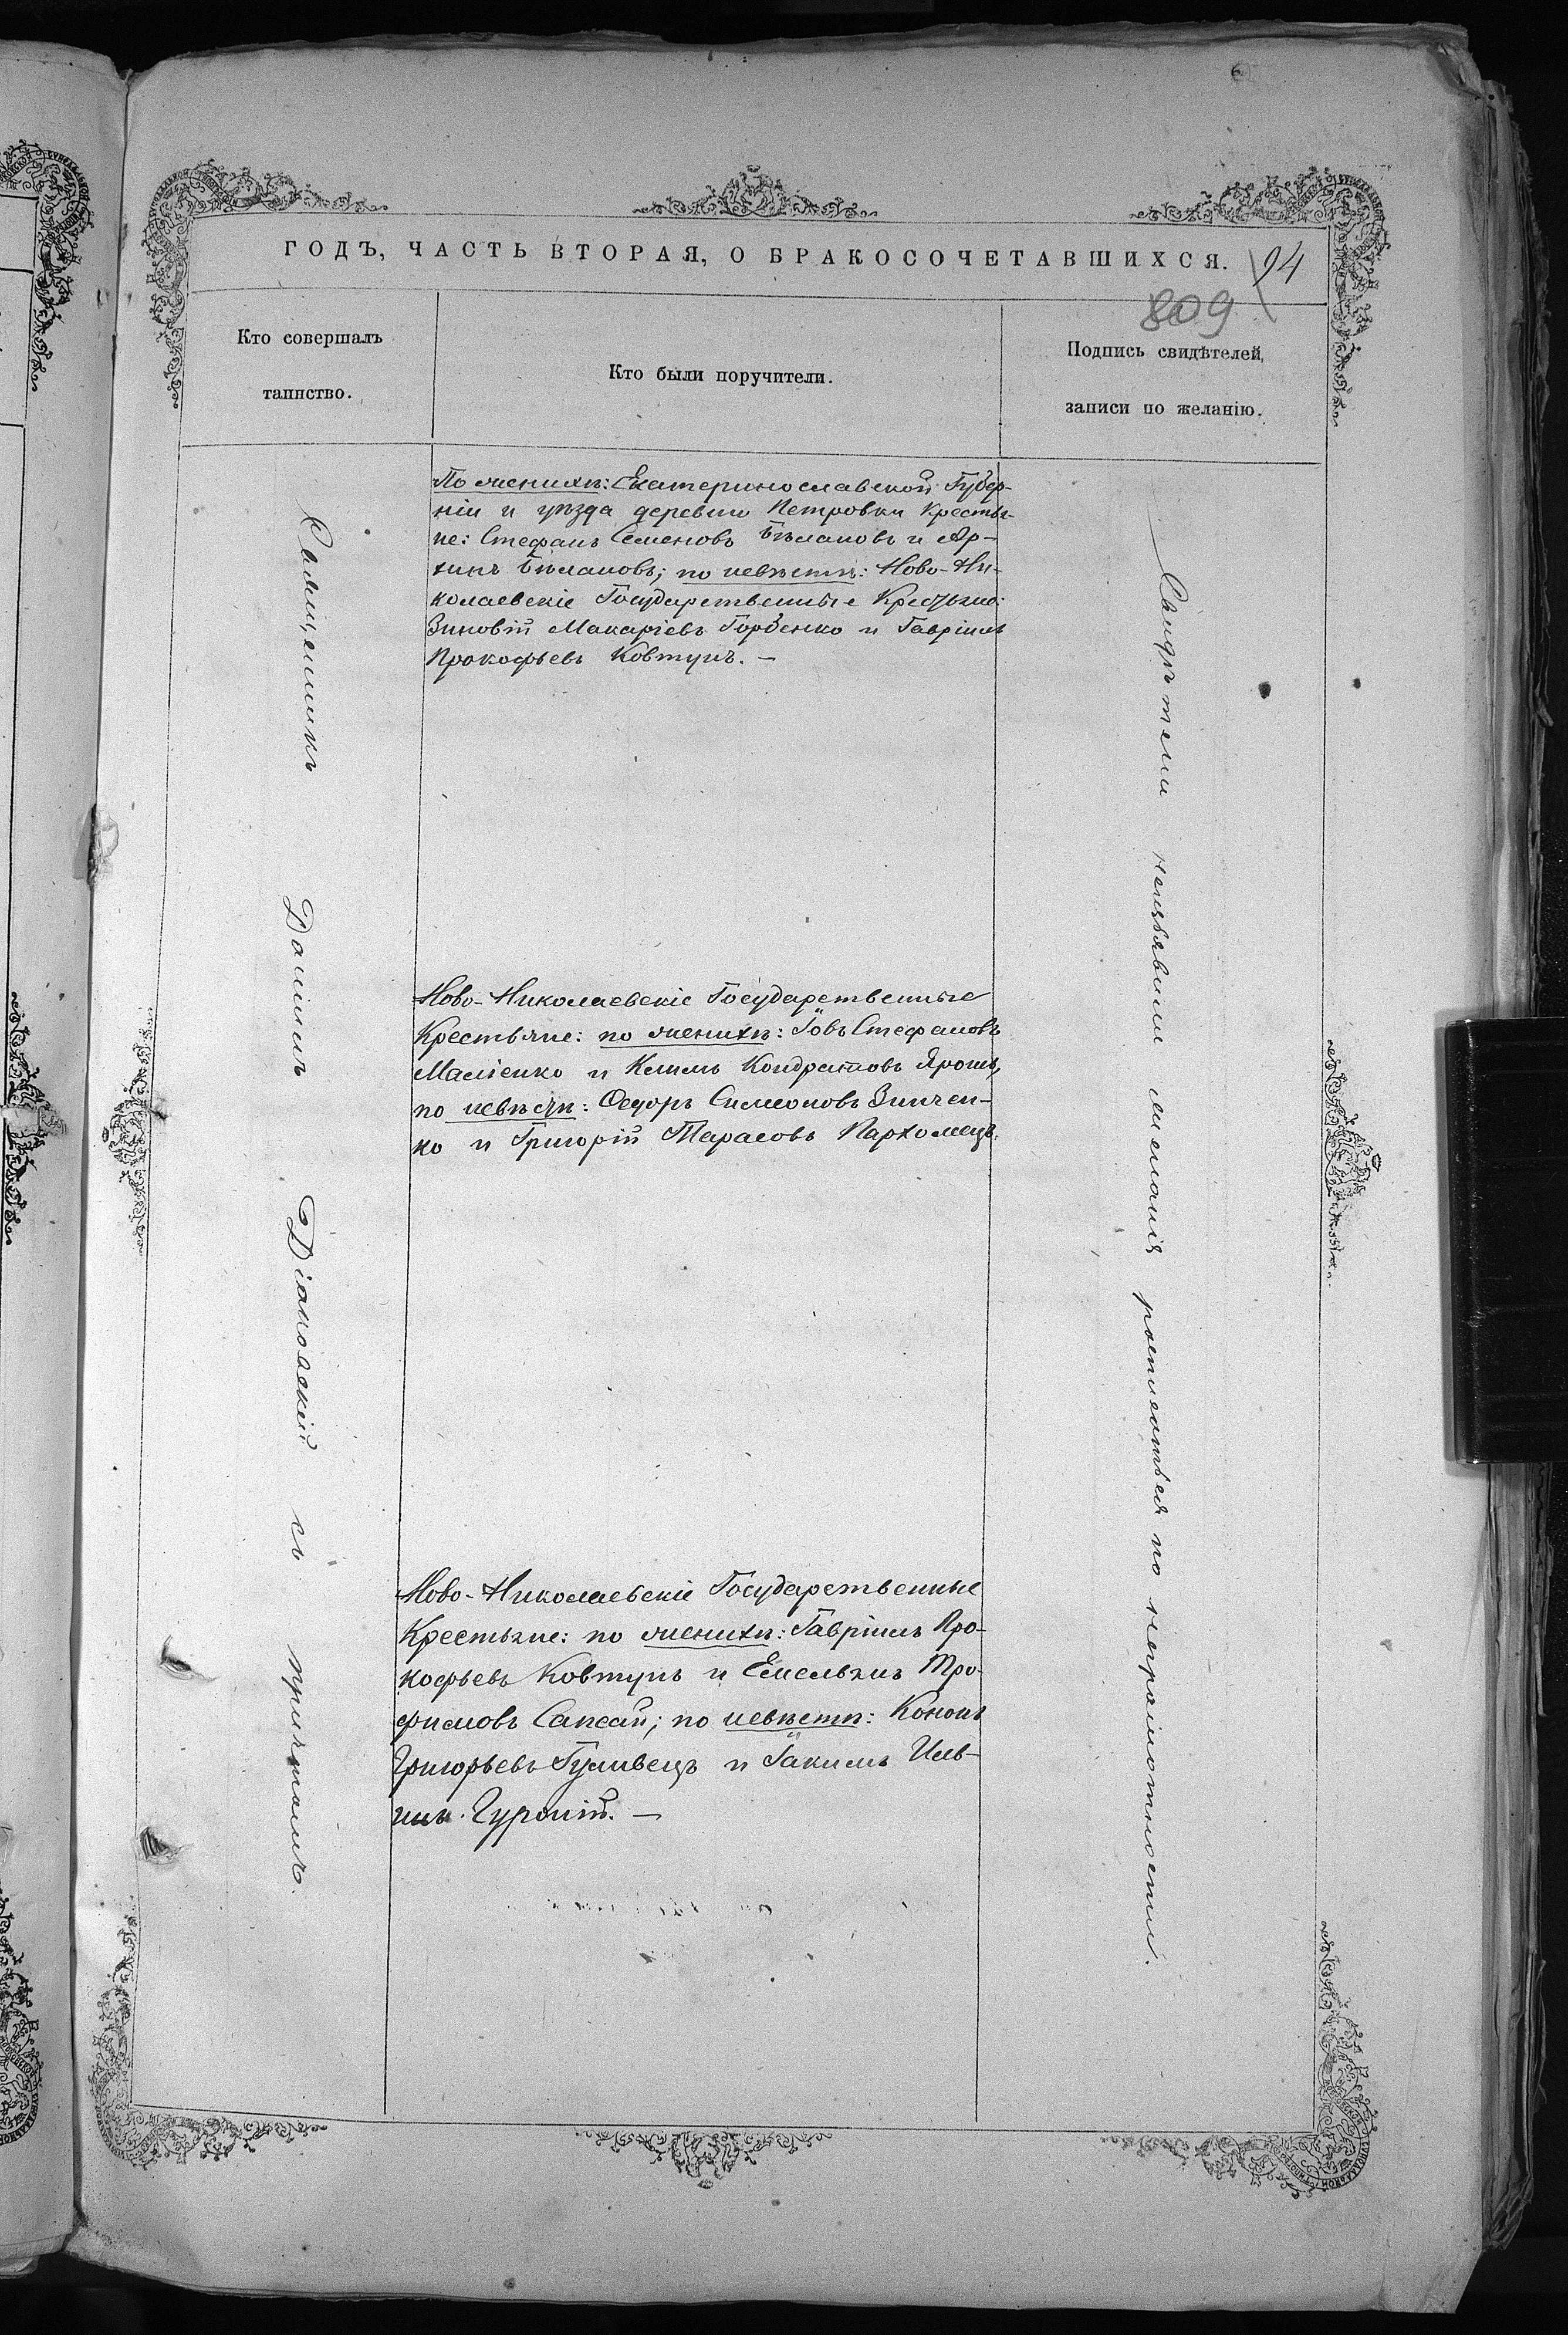 ГОДЪ, ЧАСТЬ ВТОРАЯ, О БРАКОСОЧЕТАВШИХСЯ.
94
809
Кто совершалъ
таинство.
Кто были поручители.
Подпись свидѣтелей
записи по желанію.
Священникъ Даніилъ Діаковскій съ причтомъ.
По женихѣ: Екатеринославской Губер-
ніи и уѣзда деревни Петровки Крестья-
не: Стефанъ Семеновъ Бѣлановъ и Ар-
хипъ Бѣлановъ; по невѣстѣ: Ново-Ни-
колаевскіе Государственные Крестьяне:
Зиновій Макаріевъ Горбенко и Гавріилъ
Прокофьевъ Ковтунъ. —
Ново-Николаевскіе Государственные
Крестьяне: по женихѣ: Іовъ Стефановъ
Маліенко и Климъ Кондратовъ Ярошъ,
по невѣстѣ: Ѳедоръ Симеоновъ Зинчен-
ко и Григорій Тарасовъ Пархомецъ.
Ново-Николаевскіе Государственные
Крестьяне: по женихѣ: Гавріилъ Про-
кофьевъ Ковтунъ и Емельянъ Тро-
фимовъ Сапсай; по невѣстѣ: Кононъ
Григорьевъ Гуливецъ и Іакимъ Иль-
инъ Гурпій. —
Свидѣтели неизъявили желанія росписаться по неграмотности.